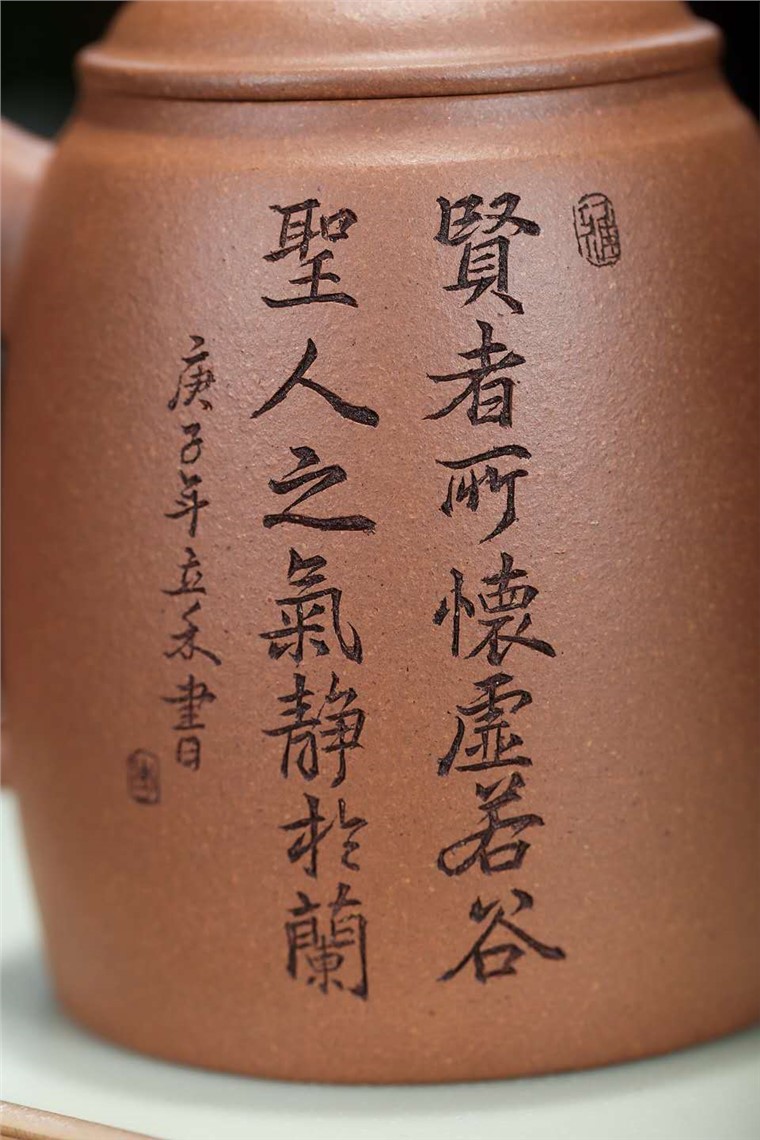 賢者所懷虛若谷
聖人之氣静於蘭
庚子年立禾書